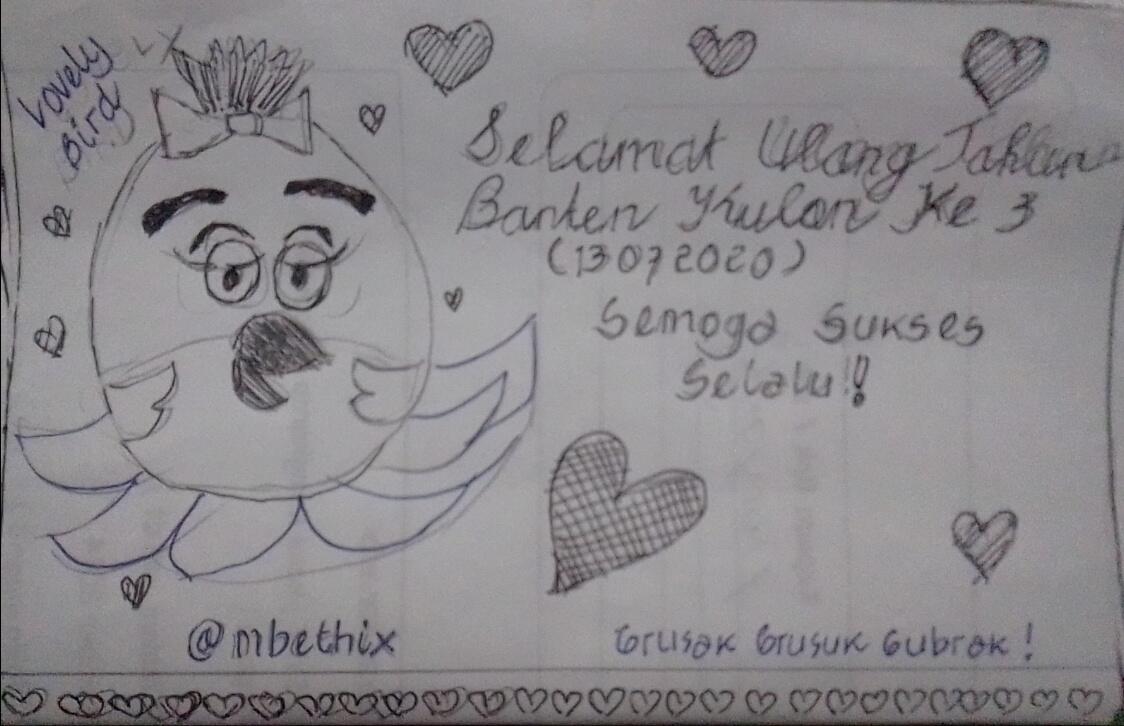 Lovely
Bird
Selamat Ulang Tahun
Banten Kulon Ke 3
(13072020)
Semoga Sukses
Selalu!!
@mbethix
Grusak Grusuk Gubrak!